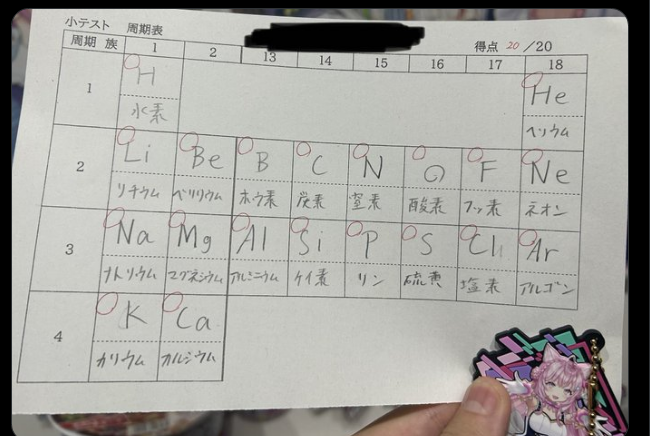 小テスト 周期表 得点 20/20
周期 族 1 2 13 14 15 16 17 18
1 H He
水素 ヘリウム
2 Li Be B C N O F Ne
リチウム ベリリウム ホウ素 炭素 窒素 酸素 フッ素 ネオン
3 Na Mg Al Si P S Cl Ar
ナトリウム マグネシウム アルミニウム ケイ素 リン 硫黄 塩素 アルゴン
4 K Ca
カリウム カルシウム